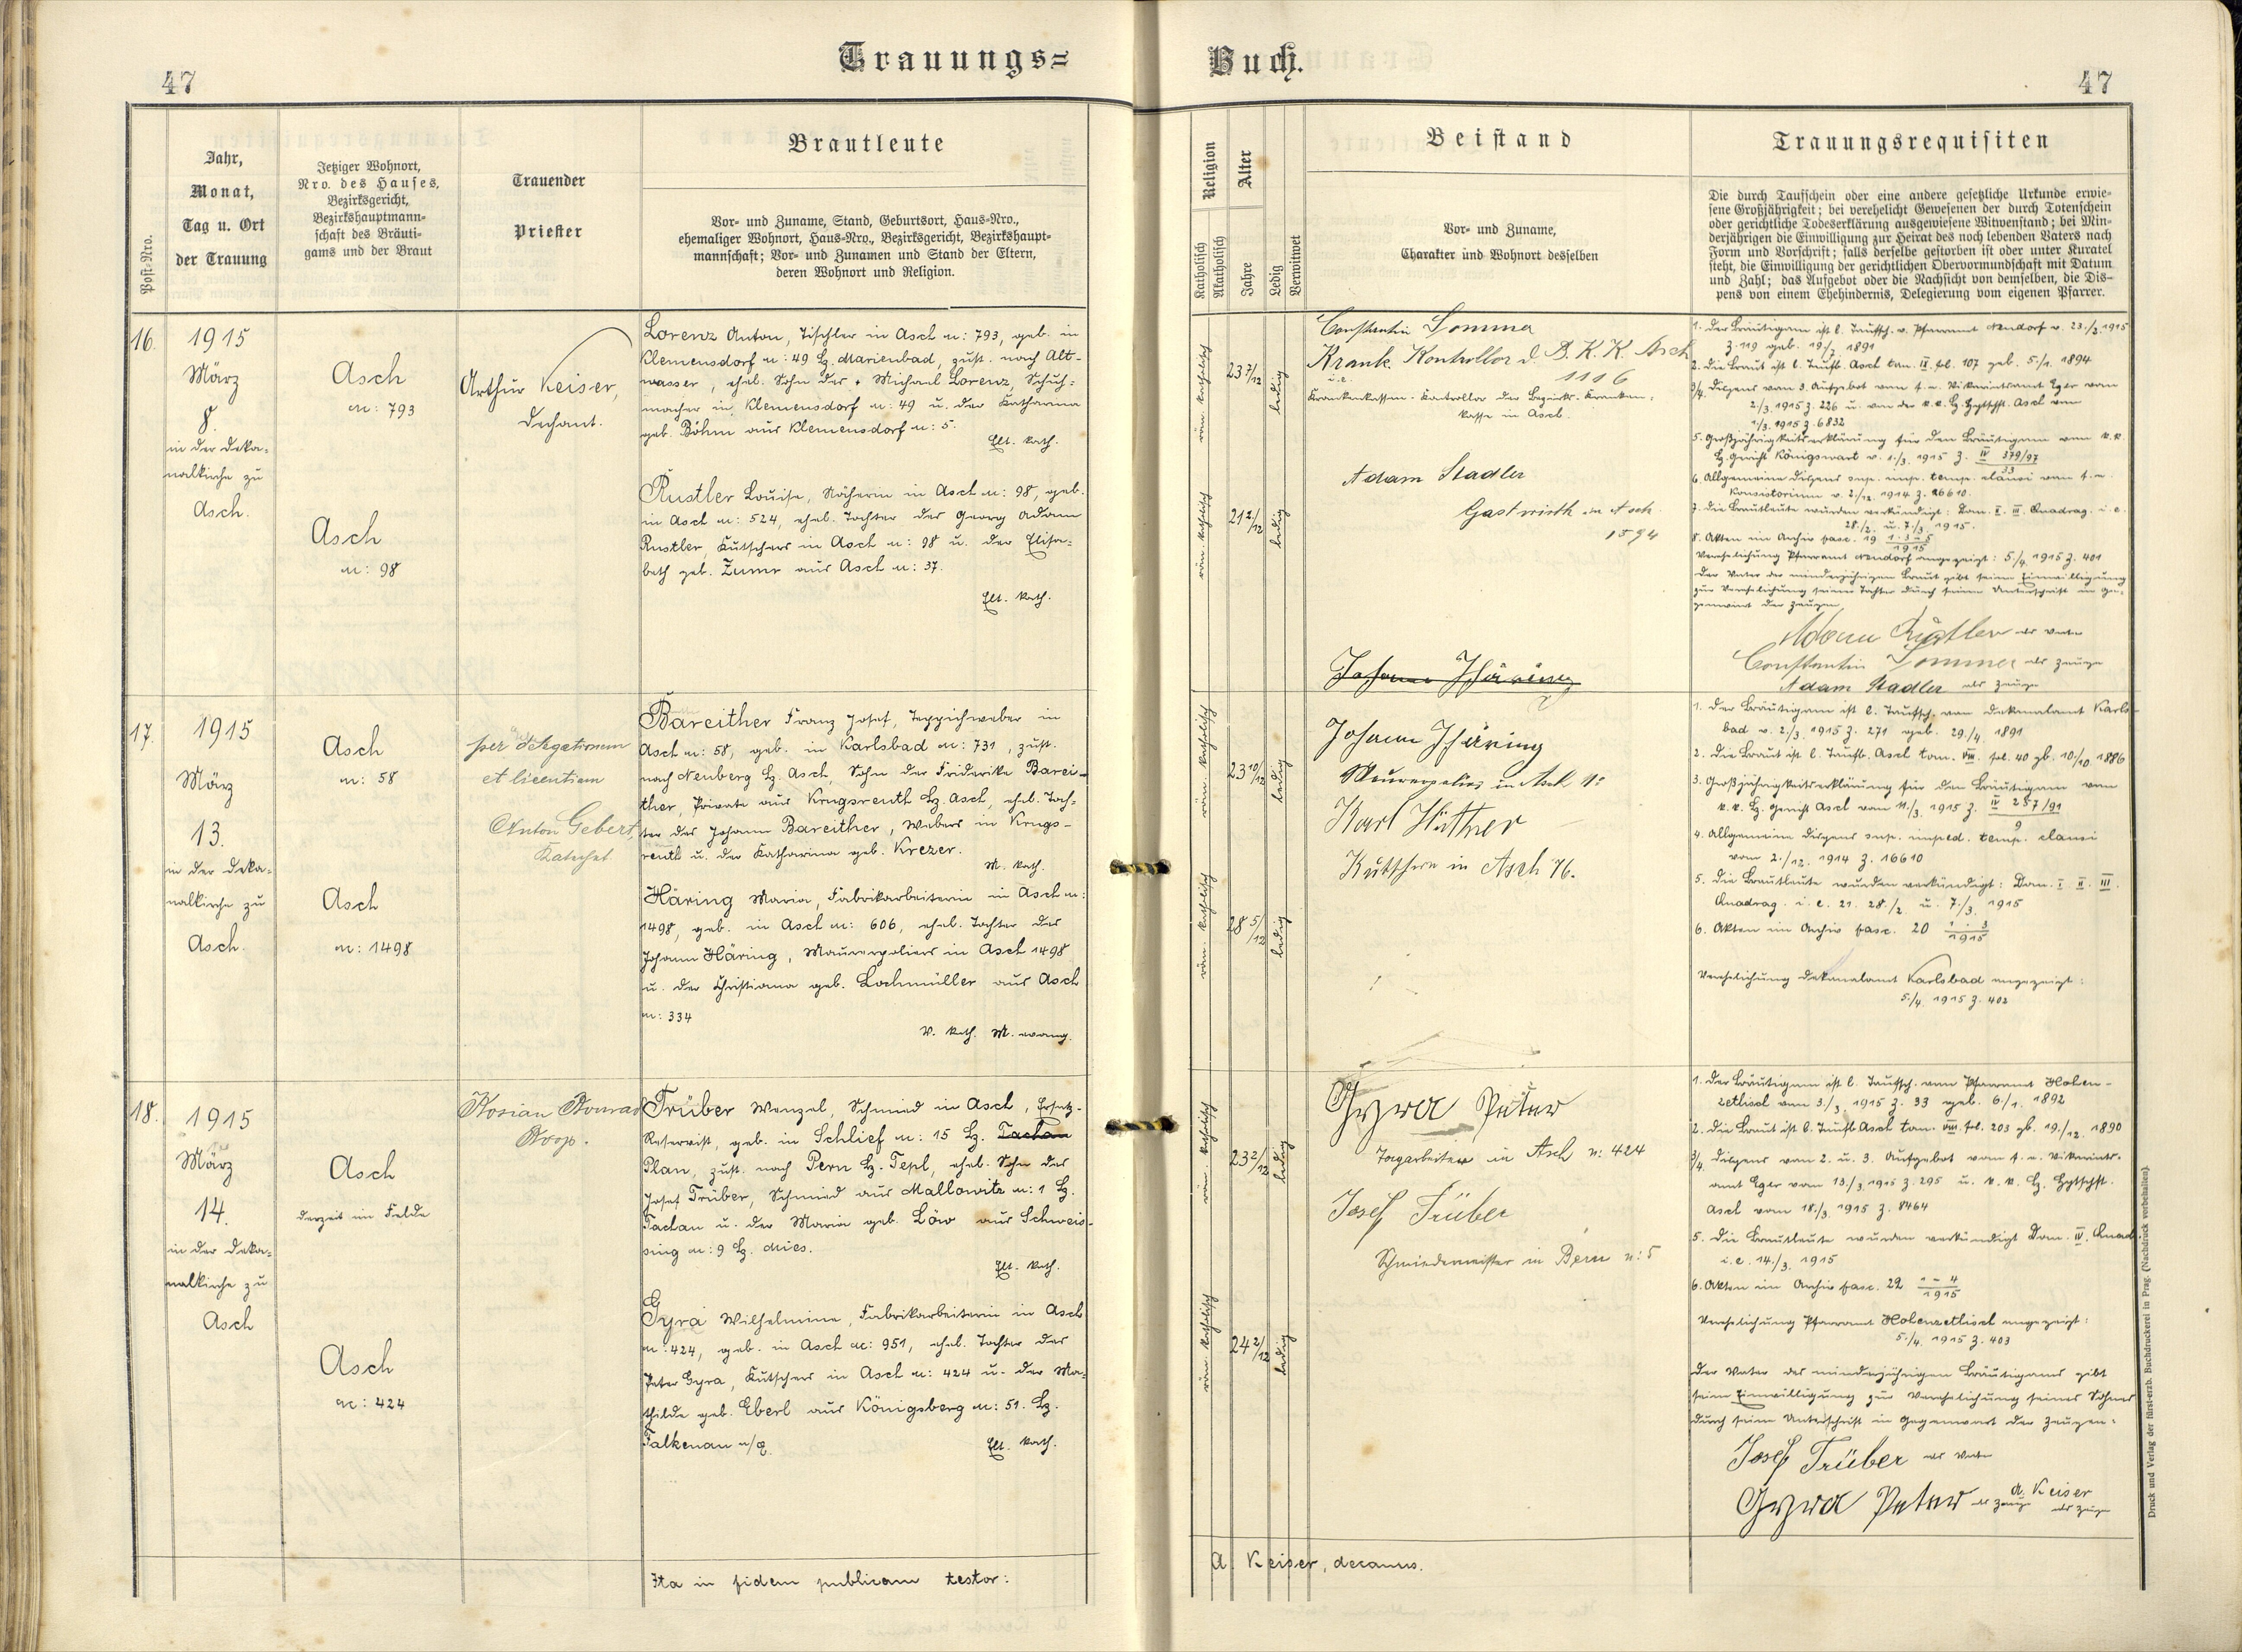 Trauungs=
Buch.
47
47
Post-Nro.
Jahr,
Monat,
Tag u. Ort
der Trauung
Jetziger Wohnort,
Nro. des Hauses,
Bezirksgericht,
Bezirkshauptmann-
schaft des Bräuti-
gams und der Braut
Trauender
Priester
Brautleute
Vor- und Zuname, Stand, Geburtsort, Haus-Nro.,
ehemaliger Wohnort, Haus-Nro., Bezirksgericht, Bezirkshaupt-
mannschaft; Vor- und Zunamen und Stand der Eltern,
deren Wohnort und Religion.
Religion
Katholisch
Akatholisch
Alter
Jahre
Ledig
Verwitwet
Beistand
Vor- und Zuname,
Charakter und Wohnort desselben
Trauungsrequisiten
Die durch Taufschein oder eine andere gesetzliche Urkunde erwie-
sene Großjährigkeit; bei verehelicht Gewesenen der durch Totenschein
oder gerichtliche Todeserklärung ausgewiesene Witwenstand; bei Min-
derjährigen die Einwilligung zur Heirat des noch lebenden Vaters nach
Form und Vorschrift; falls derselbe gestorben ist oder unter Kuratel
steht, die Einwilligung der gerichtlichen Obervormundschaft mit Datum
und Zahl; das Aufgebot oder die Nachsicht von demselben, die Dis-
pens von einem Ehehindernis, Delegierung vom eigenen Pfarrer.
16.
1915
März
8.
in der Deka=
nalkirche zu
Asch.
Asch
n: 793
Asch
n: 98
Arthur Keiser,
Dechant.
Lorenz Anton, Tischler in Asch n: 793, geb. in
Klemensdorf n: 49 Bz. Marienbad, zust. nach Alt-
wasser, ehel. Sohn des + Michael Lorenz, Schuh=
macher in Klemensdorf n: 49 u. der Katharina
geb. Böhm aus Klemensdorf n: 5.
Elt. kath.
Rustler Louise, Näherin in Asch n: 98, geb.
in Asch n: 524, ehel. Tochter des Georg Adam
Rustler, Kutschers in Asch n: 98 u. der Elisa=
beth geb. Zumr aus Asch n: 37.
Elt. kath.
röm. katholisch
23 7/12
ledig
röm. katholisch
21 2/12
ledig
Constantin Sommer
Krank. Kontrollor d. B. K. K. Asch
1116
Krankenkassen-Kontrollor der Bezirks-Kranken=
kasse in Asch.
Adam Stadler
Gastwirth in Asch
1594
Johann Häring
1. Der Bräutigam ist l. Taufsch. v. Pfarramt Neudorf v. 23./2. 1915
Z. 119 geb. 19/7 1891
2. Die Braut ist l. Taufb. Asch tom. IX fol. 107 geb. 5./1. 1894
3/4. Dispens vom 3. Aufgebot vom f. e. Vikariatsamt Eger vom
2./3. 1915 Z. 226 u. von der k. k. Bz. Hptschft. Asch vom
1/3. 1915 Z. 6832
5. Großjährigkeitserklärung für den Bräutigam vom k. k.
Bz. Gericht Königswart v. 1./3. 1915 Z. IV 379/97
33
6. Allgemeine Dispens sup. imp. temp. clausi vom f. e.
Konsistorium v. 2./12. 1914 Z. 16610.
7. Die Brautleute wurden verkündigt: Dom. II. III. Quadrag. i. e.
28./2. u. 7./3. 1915.
8. Akten im Archiv fasc. 19 1-3-5
1915
Verehelichung Pfarramt Neudorf angezeigt: 5./4. 1915 Z. 401
Der Vater der minderjährigen Braut gibt seine Einwilligung
zur Verehelichung seiner Tochter durch seine Unterschrift in Ge-
genwart der Zeugen
Adam Rustler als Vater
Constantin Sommer als Zeuge
Adam Stadler als Zeuge
17.
1915
März
13.
in der Deka=
nalkirche zu
Asch.
Asch
n: 58
Asch
n: 1498
per delegationem
et licentiam
Anton Gebert,
Katechet
Bareither Franz Josef, Teppichweber in
Asch n: 58, geb. in Karlsbad n: 731, zust.
nach Neuberg Bz. Asch, Sohn der Friderike Barei-
ther, Private aus Krugsreuth Bz. Asch, ehel. Toch=
ter des Johann Bareither, Webers in Krugs-
reuth u. der Katharina geb. Krezer.
M. kath.
Häring Maria, Fabrikarbeiterin in Asch n:
1498, geb. in Asch n: 606, ehel. Tochter des
Johann Häring, Maurerpoliers in Asch 1498
u. der Christiana geb. Lochmüller aus Asch
n: 334
V. kath. M. evang.
röm. katholisch
23 10/12
ledig
röm. katholisch
28 5/12
ledig
Johann Häring
Maurerpolier in Asch n:
Karl Hüttner
Kutscher in Asch 76.
1. Der Bräutigam ist l. Taufsch. vom Dekanalamt Karls-
bad v. 2./3. 1915 Z. 271 geb. 29./4. 1891
2. Die Braut ist l. Taufb. Asch tom. VIII. fol. 40 gb. 10/10 1886
3. Großjährigkeitserklärung für den Bräutigam vom
k. k. Bz. Gericht Asch vom 11./3. 1915 Z. IV 257/91
9
4. Allgemeine Dispens sup. imped. temp. clausi
vom 2./12. 1914 Z. 16610
5. Die Brautleute wurden verkündigt: Dom. I. II. III.
Quadrag. i. e. 21. 28./2. u. 7./3. 1915
6. Akten im Archiv fasc. 20 1-3
1915
Verehelichung Dekanalamt Karlsbad angezeigt:
5./4. 1915 Z. 402
18.
1915
März
14.
in der Deka=
nalkirche zu
Asch
Asch
derzeit im Felde
Asch
n: 424
Kosian Konrad
Koop.
Trüber Wenzel, Schmied in Asch, Ersatz-
Reservist, geb. in Schlief n: 15 Bz. Tachau
Plan, zust. nach Pern Bz. Tepl, ehel. Sohn des
Josef Trüber, Schmied aus Mallowitz n: 1 Bz.
Tachau u. der Maria geb. Löw aus Schweis-
sing n: 9 Bz. Mies.
Elt. kath.
Gyra Wilhelmine, Fabrikarbeiterin in Asch
n: 424, geb. in Asch n: 951, ehel. Tochter des
Peter Gyra, Kutschers in Asch n: 424 u. der Ma=
thilde geb. Eberl aus Königsberg n: 51. Bz.
Falkenau a/E.
Elt. kath.
röm. katholisch
23 2/12
ledig
röm. katholisch
24 2/12
ledig
Gyra Peter
Tagarbeiter in Asch n: 424
Josef Trüber
Schmiedemeister in Pern n: 5
1. Der Bräutigam ist l. Taufsch. vom Pfarramt Hohen-
zetlisch vom 3./3. 1915 Z. 33 geb. 6./1. 1892
2. Die Braut ist l. Taufb Asch tom. VIII. fol. 203 gb. 19./12. 1890
3/4. Dispens vom 2. u. 3. Aufgebot vom f. e. Vikariats-
amt Eger vom 13./3. 1915 Z. 295 u. k. k. Bz. Hptschft.
Asch vom 18./3. 1915 Z. 8464
5. Die Brautleute wurden verkündigt Dom. IV. Quad.
i. e. 14./3. 1915
6. Akten im Archiv fasc. 22 1-4
1915
Verehelichung Pfarramt Hohenzetlisch angezeigt:
5./4. 1915 Z. 403
Der Vater des minderjährigen Bräutigams gibt
seine Einwilligung zur Verehelichung seines Sohnes
durch seine Unterschrift in Gegenwart der Zeugen:
Josef Trüber als Vater
Gyra Peter als Zeuge
A. Keiser
als Zeuge
Ita in fidem publicam testor:
A. Keiser, decanus.
Druck und Verlag der fürst-erzb. Buchdruckerei in Prag. (Nachdruck vorbehalten).